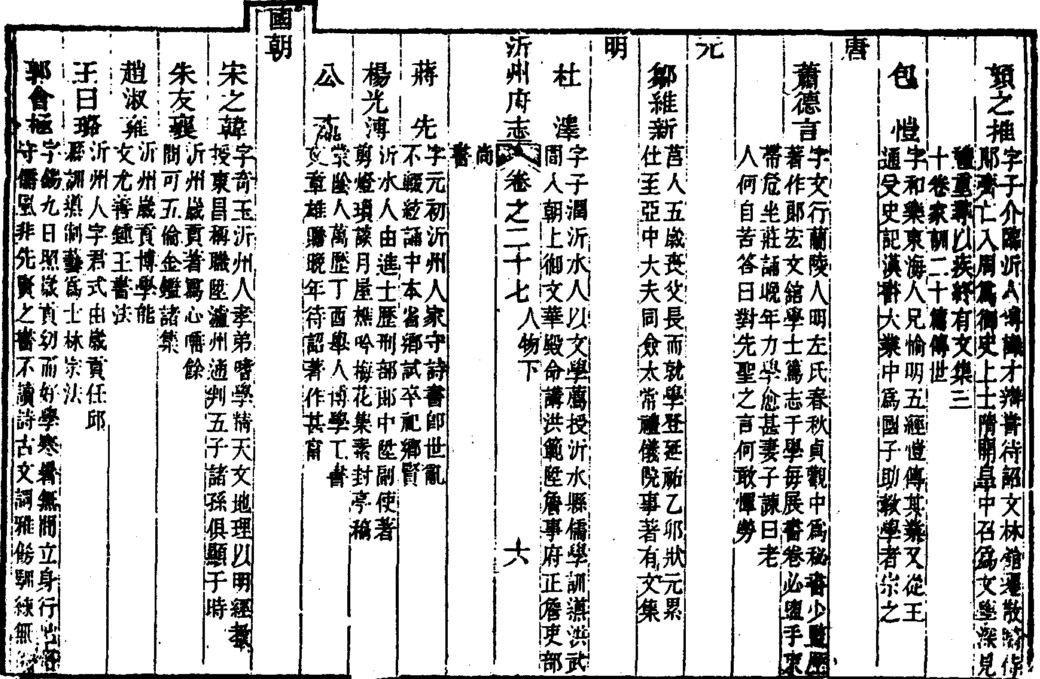 顏之推
字子介臨沂人博識才辯齊待詔文林館遷散
齊亡入周為御史上士隋開皇中召為文學深見
禮重尋以疾終有文集三
十卷家訓二十篇傳世
包愷
字和樂東海人兄愉明五經愷傳其業又從王
通受史記漢書大業中為國子助教學者宗之
唐
蕭德言
字文行蘭陵人明左氏春秋貞觀中為秘書少監歷
著作郎宏文館學士篤志于學每展書卷必盥手束
帶危坐莊誦晚年力學愈甚妻子諫曰老
人何自苦答曰對先聖之言何敢憚勞
元
鄒維新
莒人五歲喪父長而就學登延祐乙卯狀元累
仕至亞中大夫同僉太常禮儀院事著有文集
明
杜澤
字子潤沂水人以文學薦授沂水縣儒學訓導洪武
間入朝上御文華殿命講洪範陞詹事府正詹吏部
沂州府志 卷之二十七 人物下 六
尚
書
蔣先
字元初沂州人家守詩書即世亂
不輟絃誦中本省鄉試卒祀鄉賢
楊光溥
沂水人由進士歷刑部郎中陞副使著
剪燈瑣談月屋樵吟梅花集素封亭稿
公
蒙陰人萬歷丁酉舉人博學工書
文章雄贍晚年待詔著作甚富
國朝
宋之韓
字奇玉沂州人孝弟嗜學精天文地理以明經教
授東昌稱職陞瀘州通判五子諸孫俱顯于時
朱友襄
沂州歲貢著寫心唾餘
問可五倫金鑑諸集
趙淑雍
沂州歲貢博學能
文尤善鍾王書法
王曰璐
沂州人字君式由歲貢任邱
縣訓導制藝為士林宗法
郭會極
字錫九日照歲貢幼而好學寒暑無間立身行
守儒風非先賢之書不讀詩古文詞雅飭馴練無